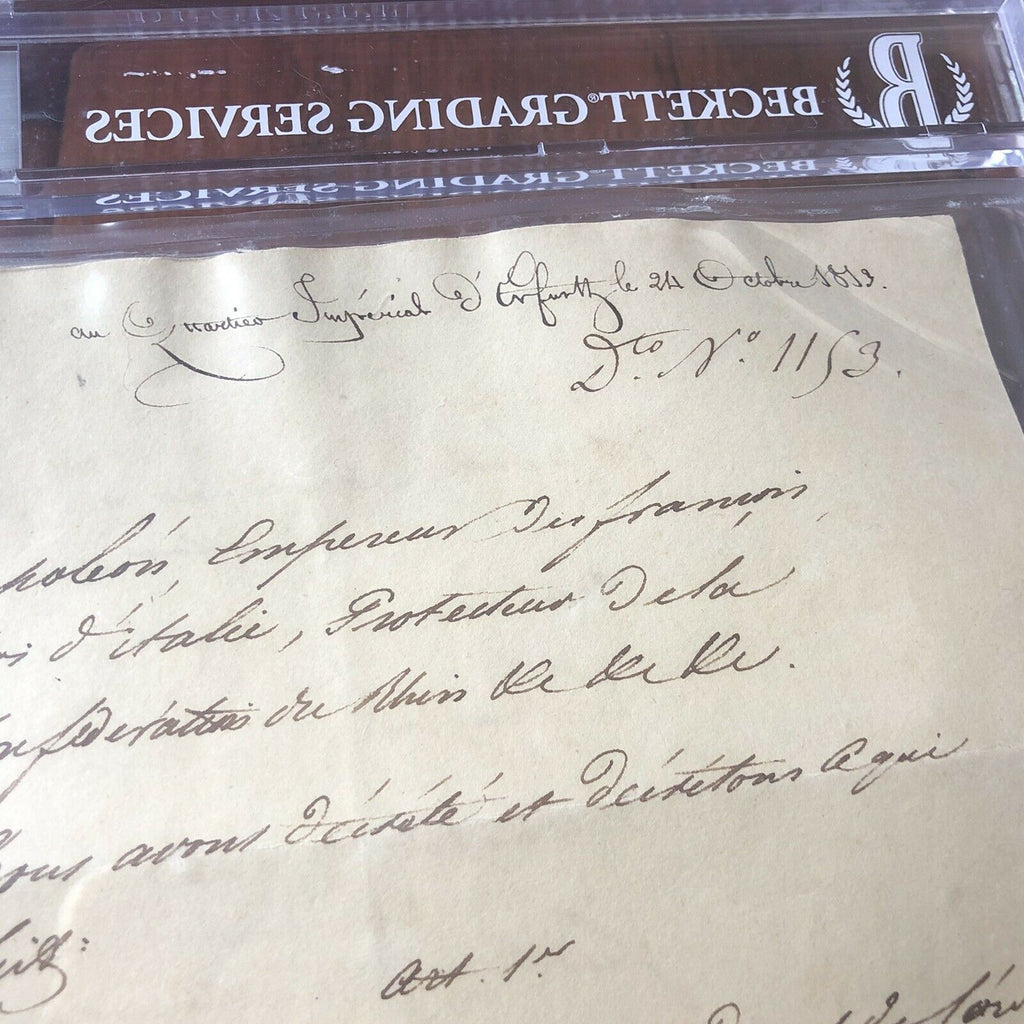 BECKETT® GRADING SERVICES
BECKETT® GRADING SERVICES
au Quartier Impérial d'Erfurth le 24 Octobre 1813.
Dto. No. 1153.
poléon, Empereur des françois,
d'italie, Protecteur de la
nfédération du Rhin &c &c &c.
ous avons décrété et décrétons ce qui
uit:
Art. 1er